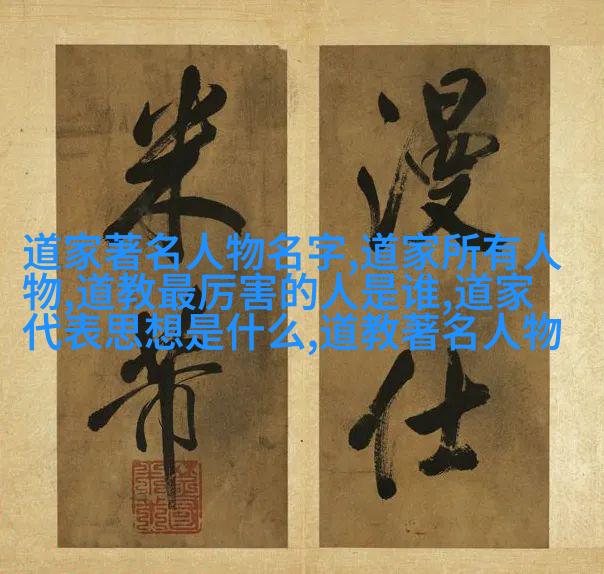 漫仕
米芾
道家著名人物名字,道家所有人
物,道教最厉害的人是谁,道家
代表思想是什么,道教著名人物